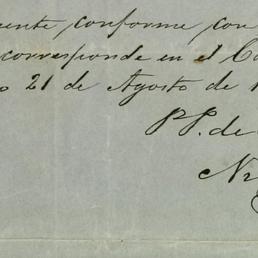 ente conforme con
corresponde en el
o 21 de Agosto de 1
P.P. de